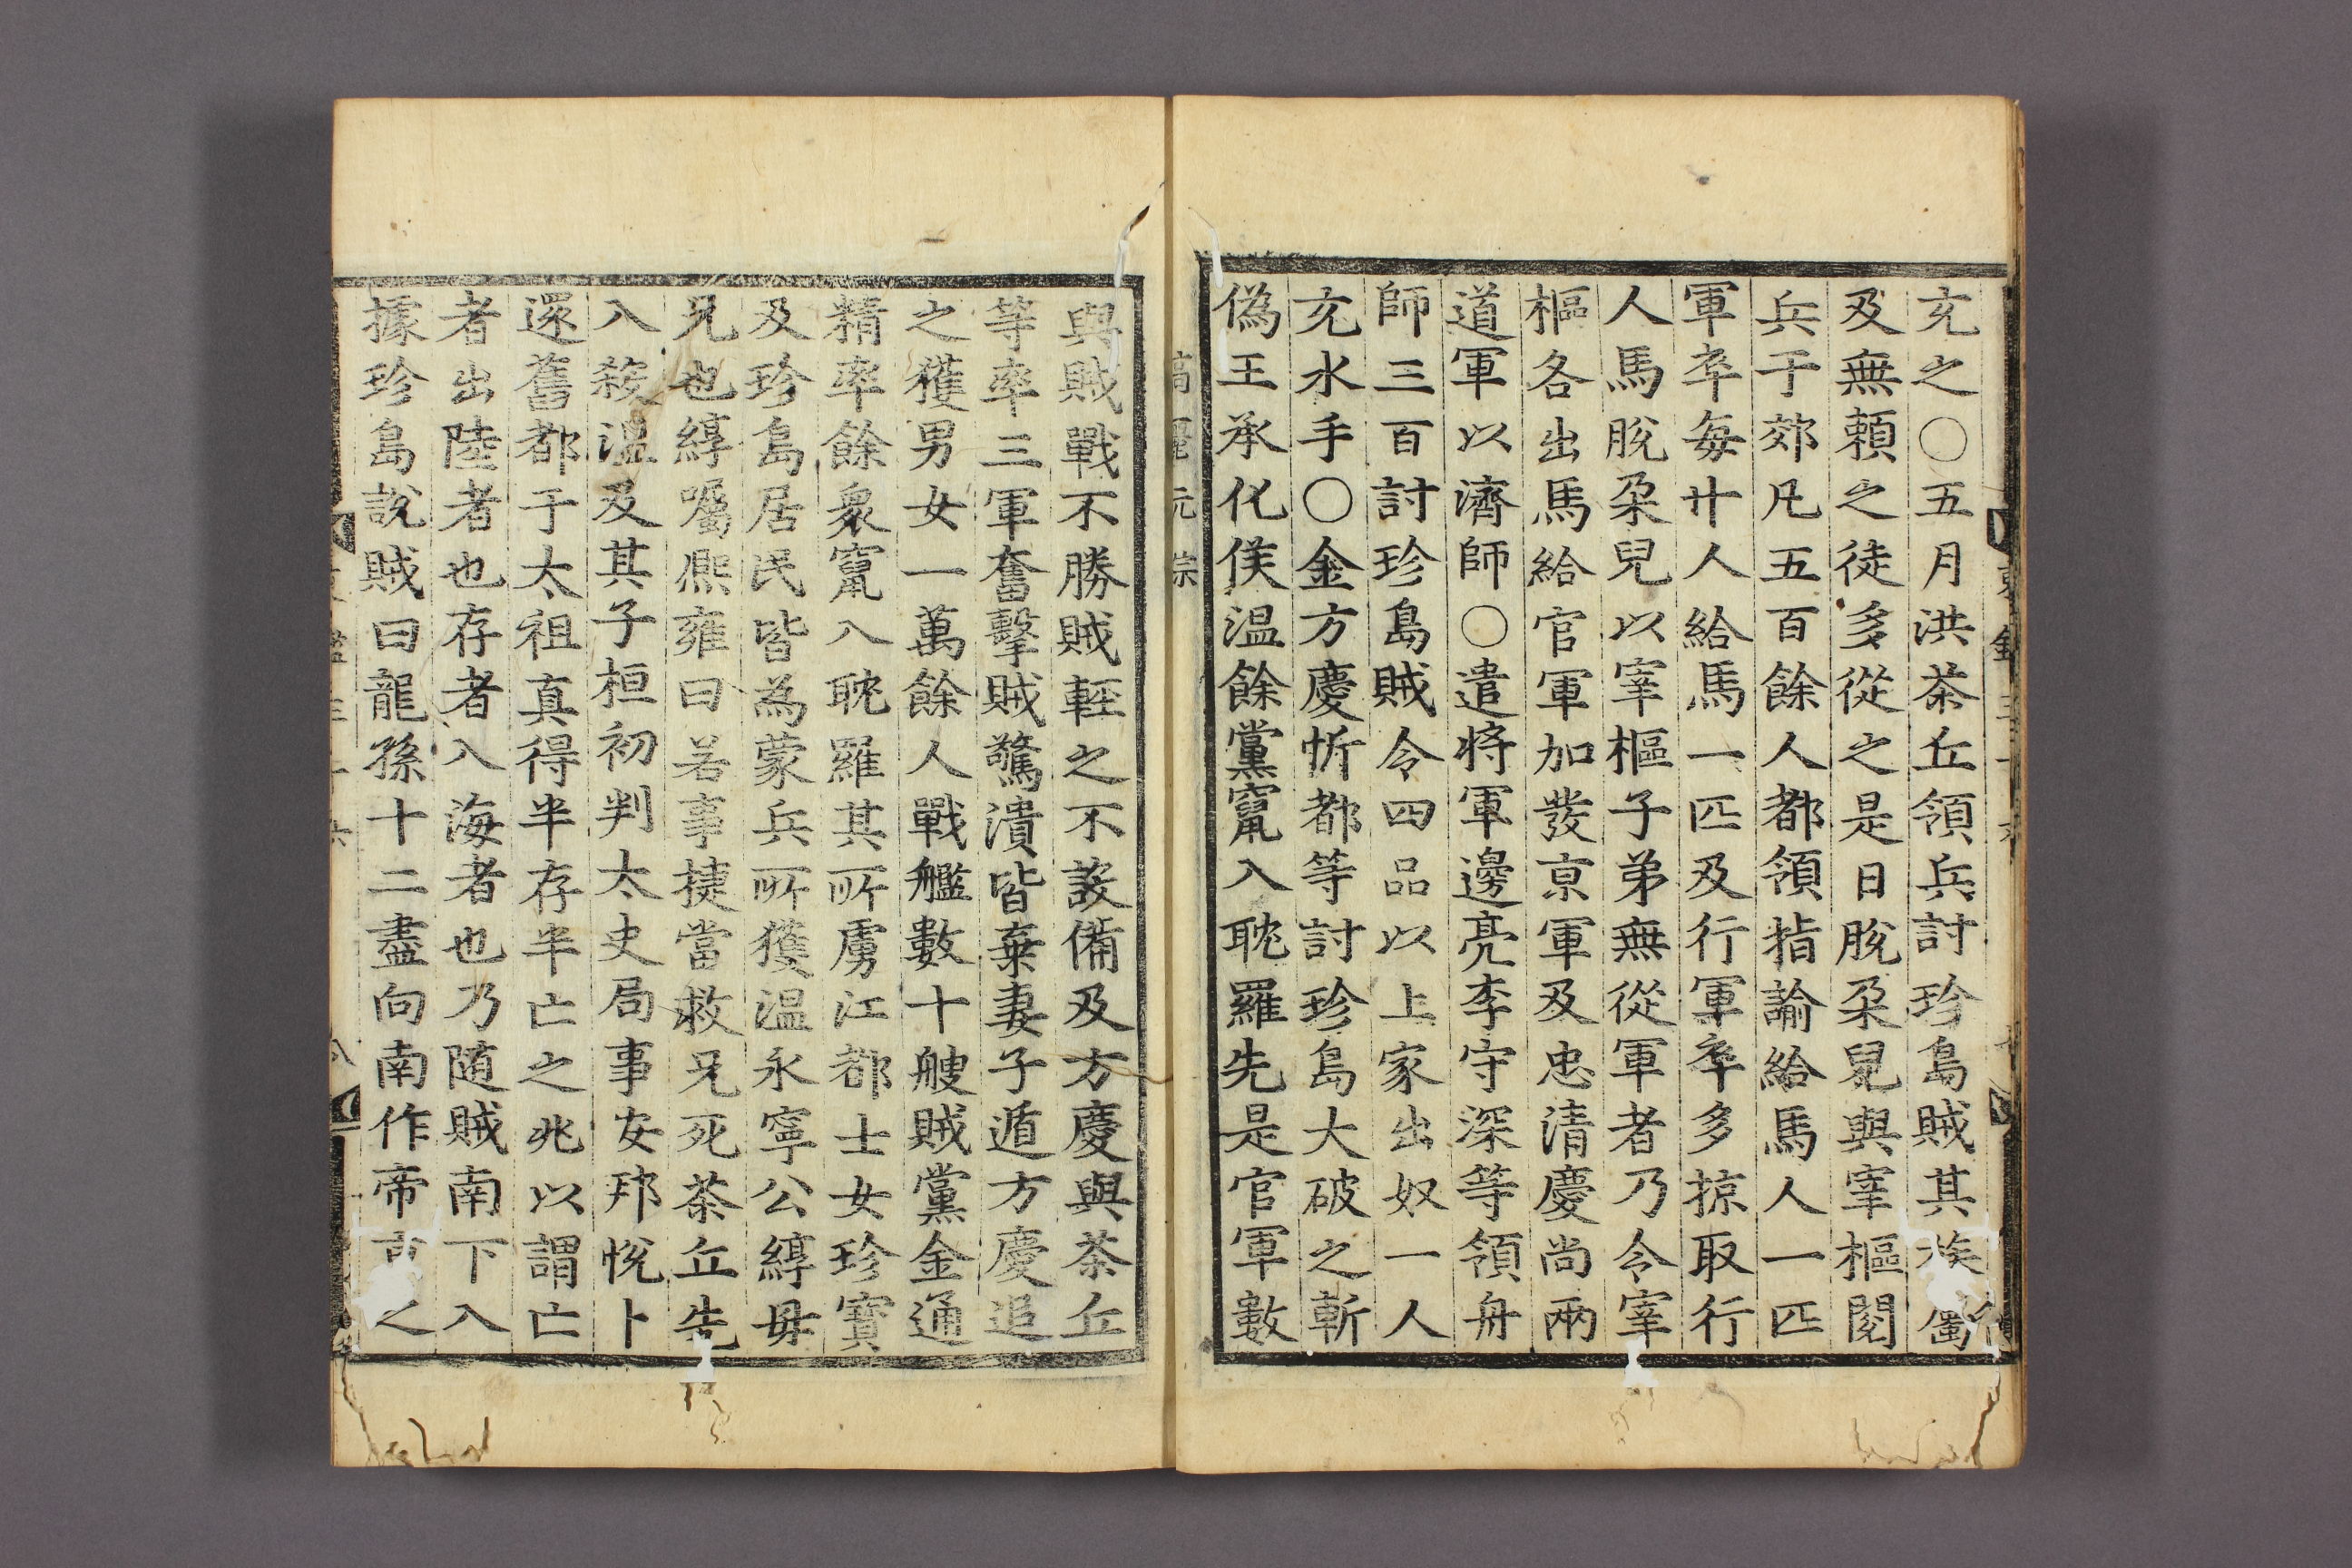 充之○五月洪茶丘領兵討珍島賊其族儻
及無頼之徒多從之是日脫朶兒與宰樞閱
兵于郊凡五百餘人都領指諭給馬人一匹
軍卒每廾人給馬一匹及行軍卒多掠取行
人馬脫朶兒以宰樞子弟無從軍者乃令宰
樞各出馬給官軍加發京軍及忠清慶尚兩
道軍以濟師○遣將軍邊亮李守深等領舟
師三百討珍島賊令四品以上家出奴一人
充水手○金方慶忻都等討珍島大破之斬
偽王承化侯温餘黨竄入耽羅先是官軍數
與賊戰不勝賊輕之不設備及方慶與茶丘
等率三軍奮擊賊驚潰皆棄妻子遁方慶追
之獲男女一萬餘人戰艦數十艘賊黨金通
精率餘衆竄入耽羅其所虜江都士女珍寶
及珍島居民皆為蒙兵所獲温永寧公綧毋
兄也綧囑熈雍曰若事捷當救兄死茶丘先
入殺温及其子桓初判太史局事安邦悅卜
還舊都于太祖真得半存半亡之兆以謂亡
者出陸者也存者入海者也乃随賊南下入
據珍島說賊曰龍孫十二盡向南作帝之